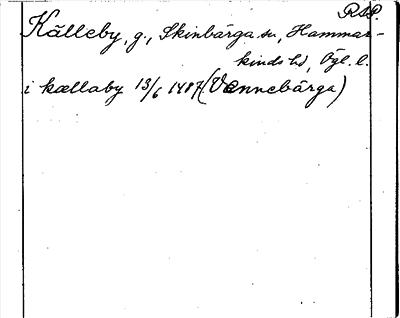 RAP.
Källeby, g., Skinbärga sn, Hammar-
kinds hd, Ögl. l.
i kællaby 13/6 1487 (Vænnebärga)